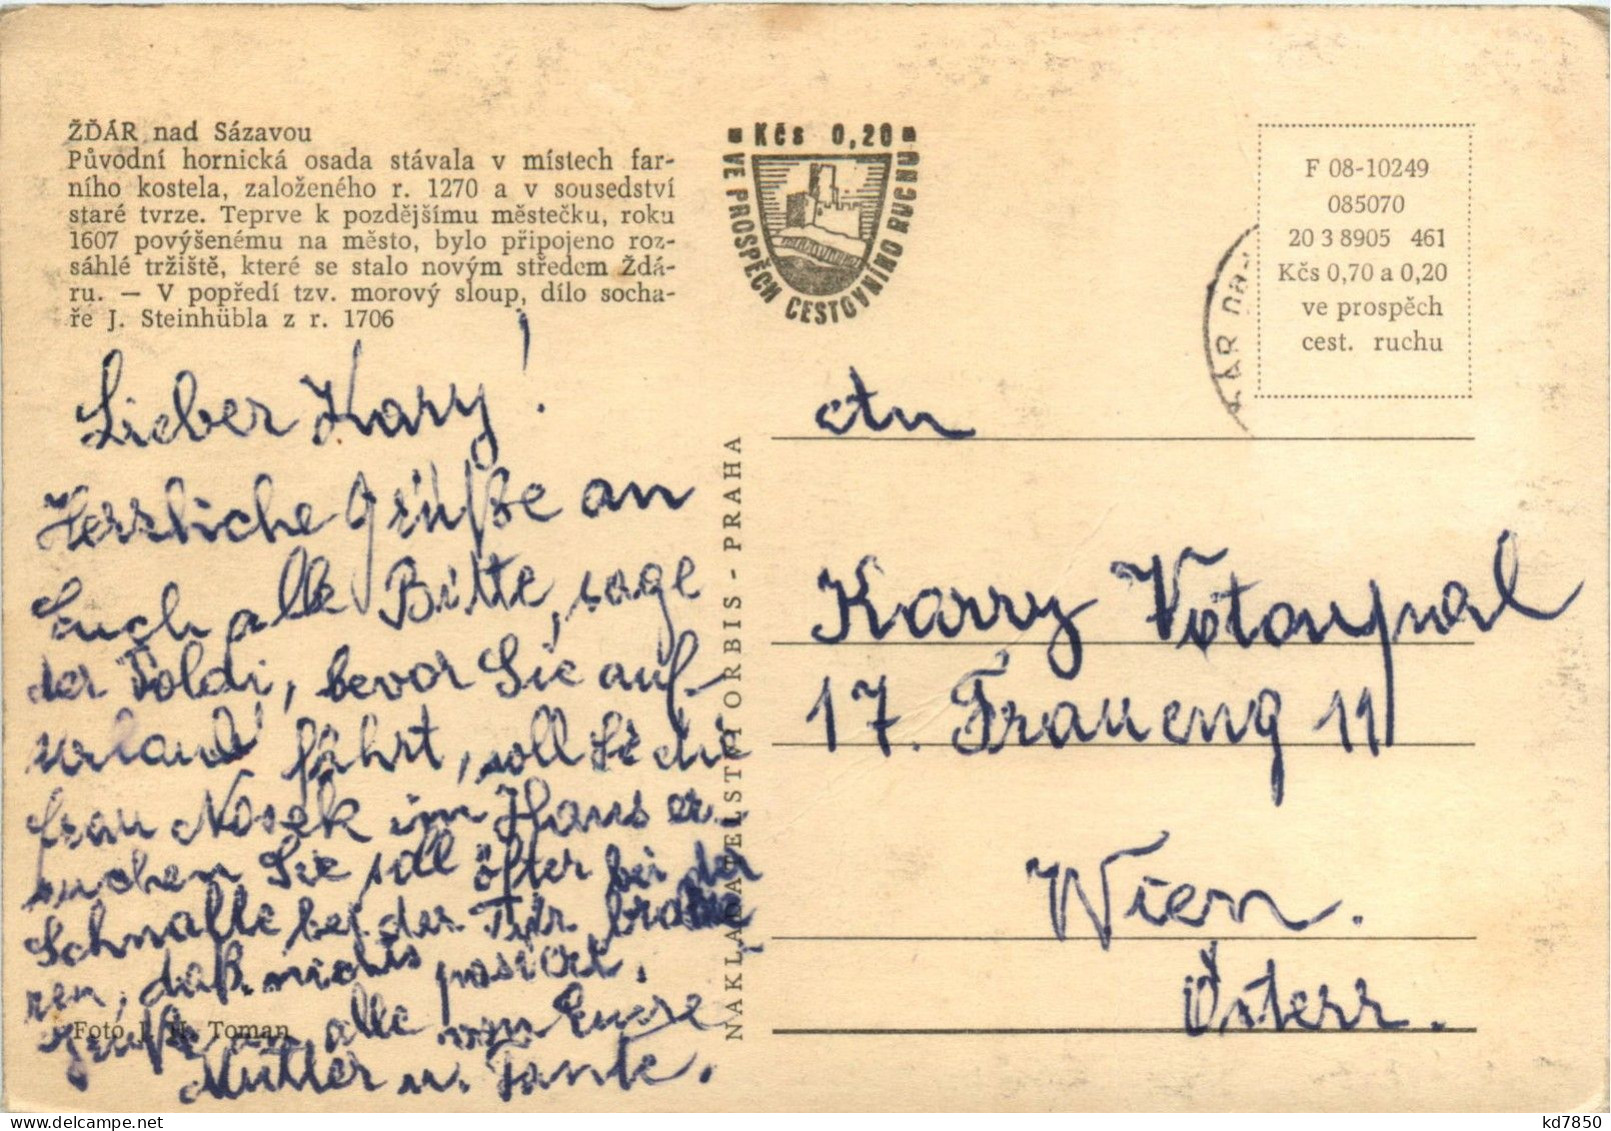 ŽĎÁR nad Sázavou
Původní hornická osada stávala v místech far-
ního kostela, založeného r. 1270 a v sousedství
staré tvrze. Teprve k pozdějšímu městečku, roku
1607 povýšenému na město, bylo připojeno roz-
sáhlé tržiště, které se stalo novým středem Žďá-
ru. — V popředí tzv. morový sloup, dílo socha-
ře J. Steinhübla z r. 1706
Lieber Karry!
Herzliche Grüße an
Euch alle Bitte, sage
der Poldi, bevor Sie auf
urlaub fährt, soll Sie die
frau Nosek im Haus er
suchen Sie soll öfter bei der
Schnalle bei der Tür
ren, daß nichts pasiert.
Grüße an alle von Eure
Mutter u. Tante.
Foto J. H. Toman
Kčs 0,20
VE PROSPĚCH CESTOVNÍHO RUCHU
NAKLADATELSTVÍ ORBIS - PRAHA
ĎÁR na
F 08-10249
085070
20 3 8905 461
Kčs 0,70 a 0,20
ve prospěch
cest. ruchu
An
Karry
17. Fraueng 11
Wien.
Österr.
kd7850